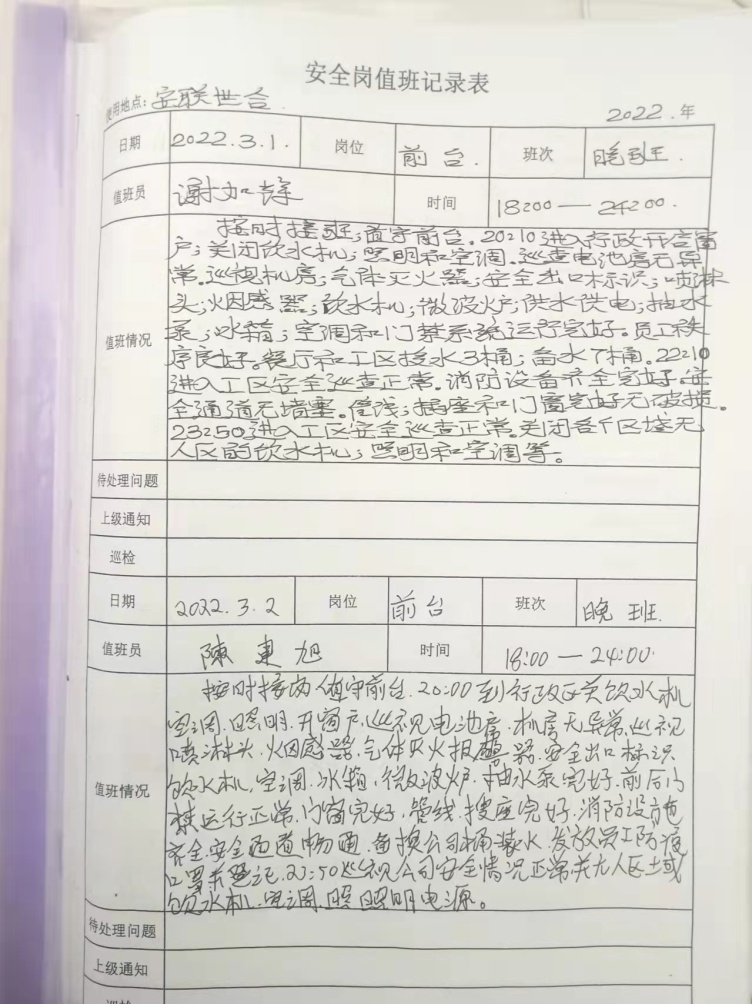 安全岗值班记录表
使用地点：安联世合 2022.年
日期 2022.3.1. 岗位 前台. 班次 晚班.
值班员 谢如 时间 18:00—24:00.
值班情况
按时接班；值守前台.20:10进入行政开启窗
户；关闭饮水机；照明和空调.巡查电池房无异
常.巡视机房；气体灭火器；安全出口标识；喷淋
头；烟感器；饮水机；微波炉；供水供电；抽水
泵；冰箱；空调和门禁系统运行完好。员工秩
序良好。餐厅和工区接水3桶；备水7桶.22:10
进入工区安全巡查正常.消防设备齐全完好.安
全通道无堵塞.管线；插座和门窗完好无破损.
23:50进入工区安全巡查正常.关闭各个区域无
人区的饮水机；照明和空调等。
待处理问题
上级通知
巡检
日期 2022.3.2 岗位 前台 班次 晚班.
值班员 陳東旭 时间 18:00—24:00
值班情况
按时接岗值守前台.20:00到行政区关饮水机
空调.照明.开窗户.巡视电池房.机房无异常.巡视
喷淋头.火烟感器.气体灭火报警器.安全出口标识
饮水机.空调.冰箱.微波炉.抽水泵完好.前后门
禁运行正常.门窗完好.管线.插座完好.消防设施
齐全.安全通道畅通.备换公司桶装水.发放员工防疫
口罩并登记.23:50巡视公司安全情况正常关无人区域
饮水机.空调.照明电源。
待处理问题
上级通知
巡检